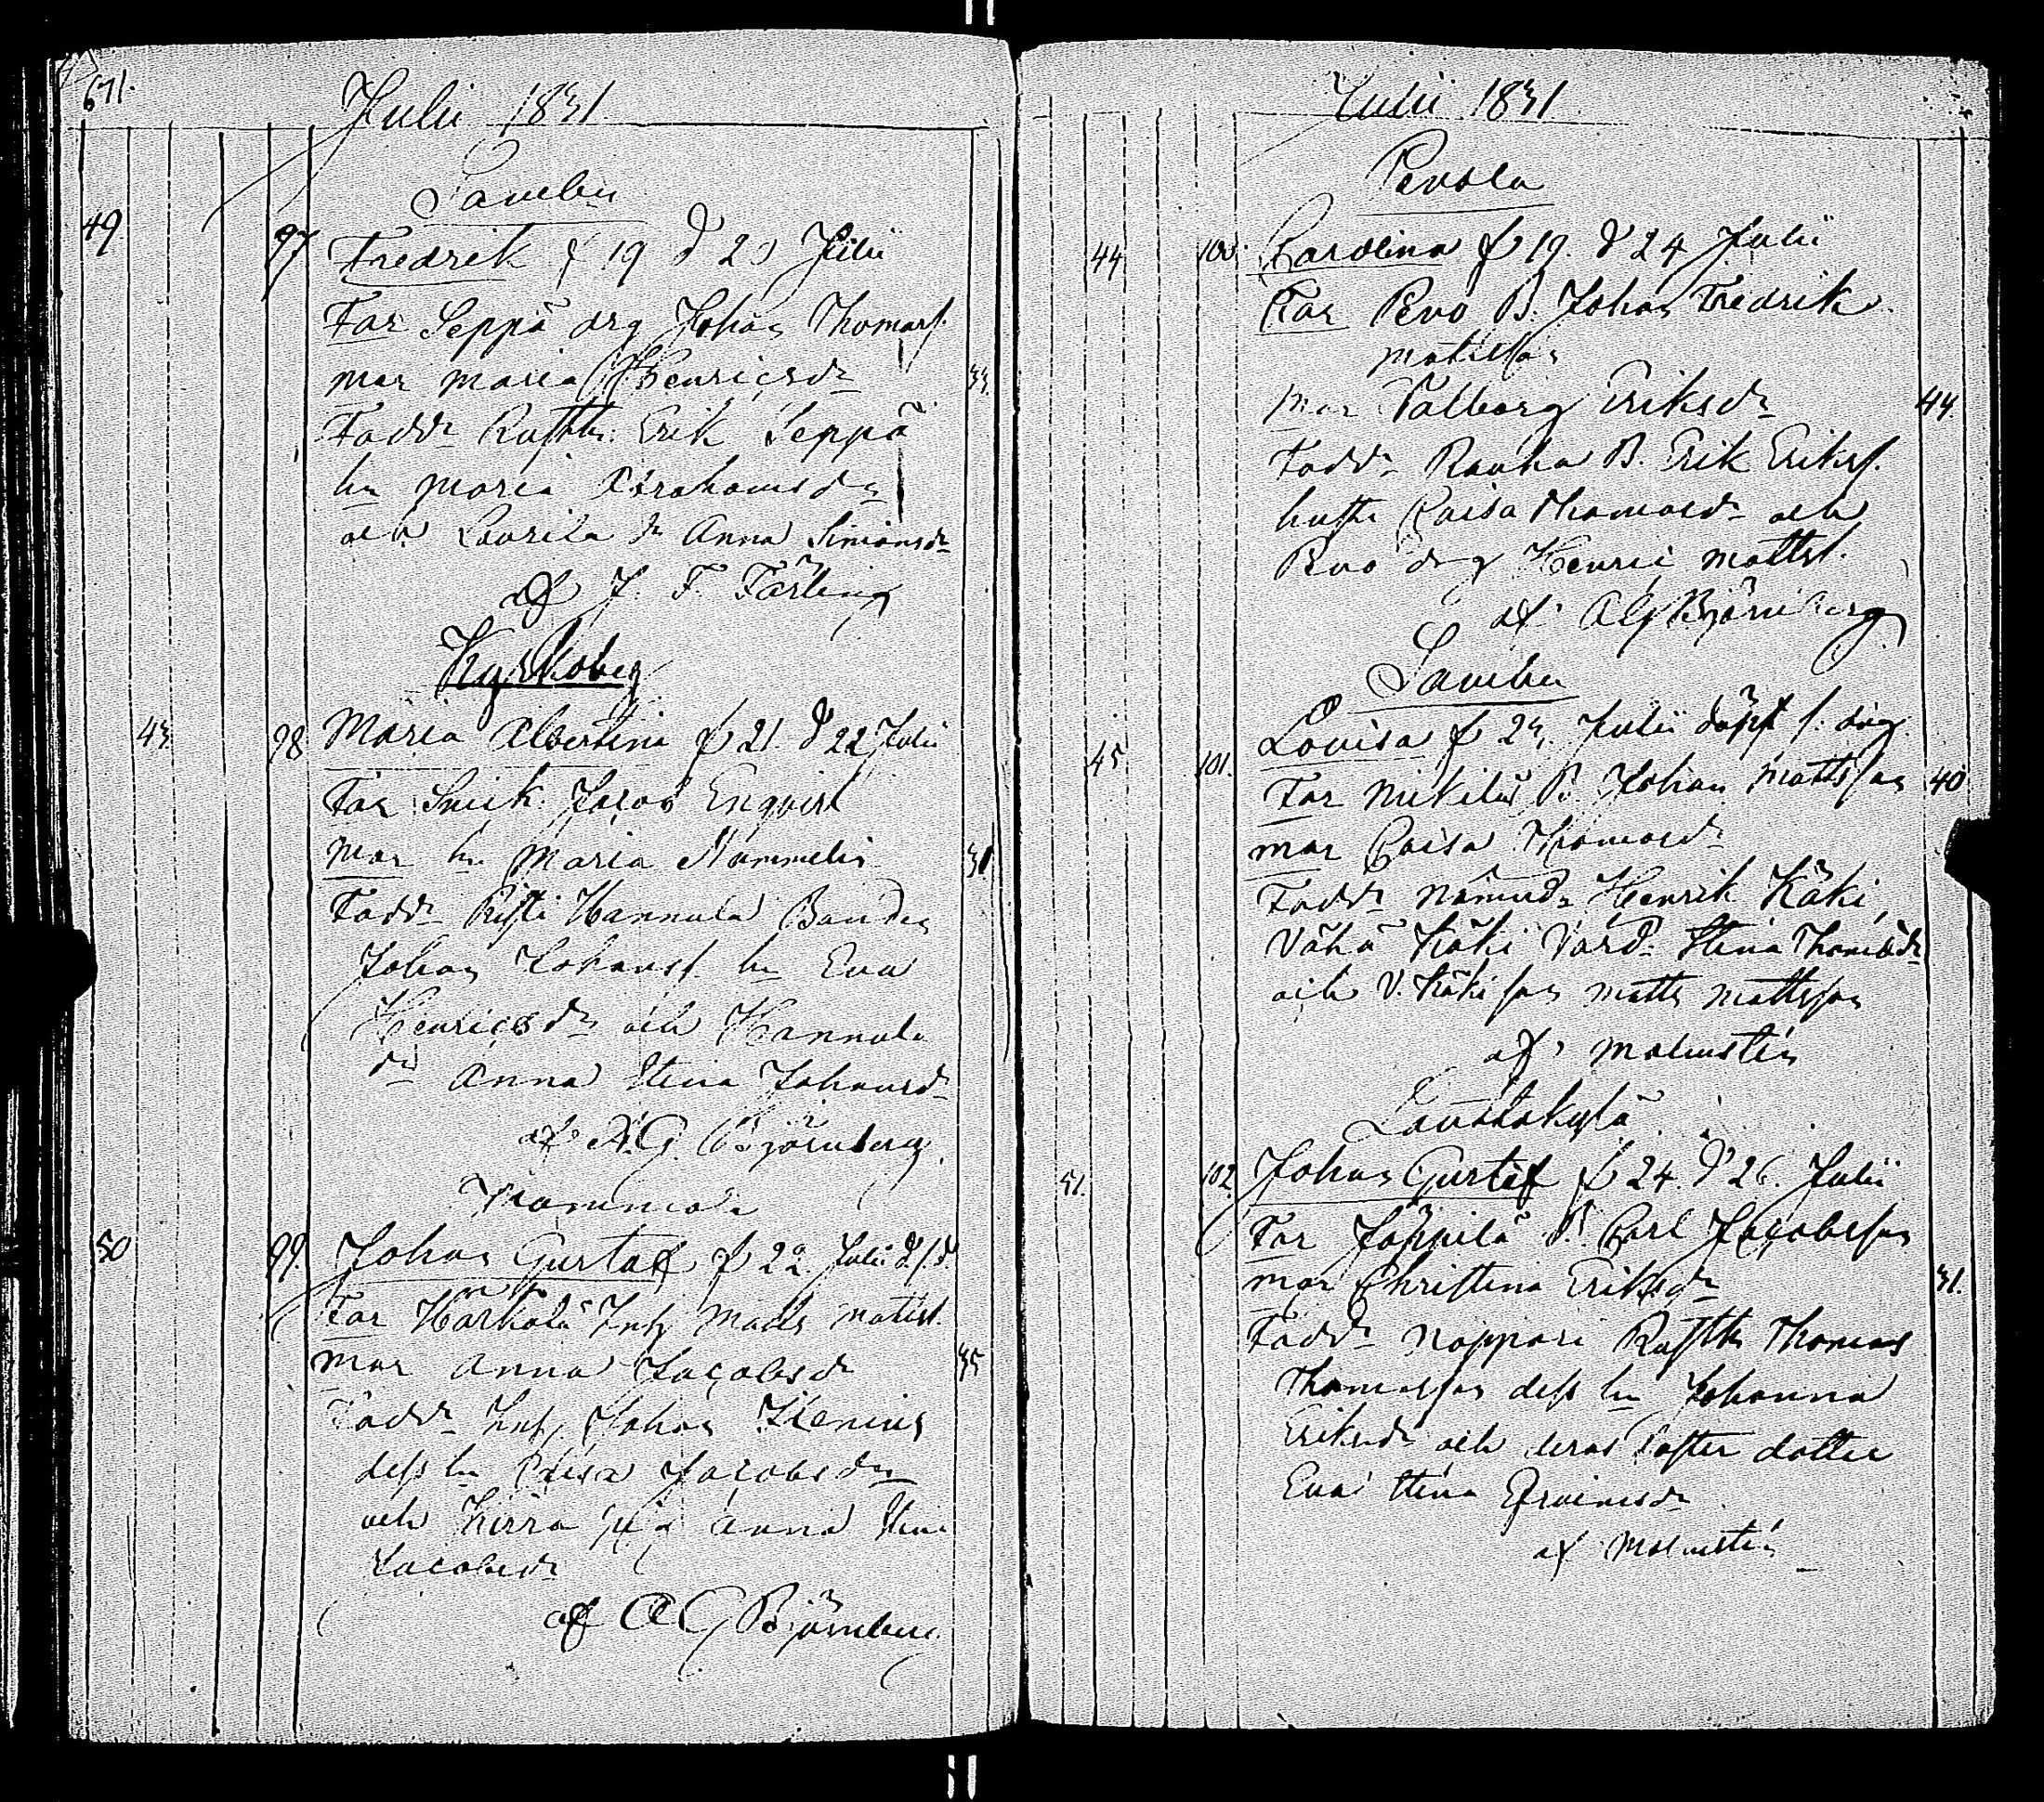 671.
Julii 1831.
Sambu
49 97 Fredrik f 19 d 20 Julii
Far Seppä drg Johan Thomass.
mor Maria Henricsdr 33.
Faddr Rustth: Erik Seppä
hu Maria Abrahamsdr
och Laurila dr Anna Simonsdr
af J. F. Färling
Kyrkoby
43 98 Maria Albertina f 21. d 22 Julii
Far Snick. Jacob Enqvist
Mor hu Maria Nummelin 31
Faddr Pristi Hannula Bonden
Johan Johanss. hu Eva
Henricsdr och Hannula
dr Anna Stina Johansdr
af A.G. Björnberg.
50 99. Johan Gustaf f 22. Julii d. s. d
Far Härkälä Inh Matts Matss.
mor Anna Jacobsdr 35
Faddr Inh. Johan
dess hu Caisa Jacobsdr
och Kirra pig Anna Stina
Jacobsdr
af A G Björnberg.
Julii 1831
Pevola
44 100. Carolina f 19. d 24 Julii
Far Pevo B. Johan Fredrik
Matsson
Mor Valborg Eriksdr 44.
Faddr Rauha B. Erik Erikss.
hustr Caisa Thomasdr och
Pevo drg Henric Mattss.
af A G Björnberg
Sambu
45 101. Lovisa f 23. Julii döpt s. dag.
Far Mikilä B. Johan Mattsson 40
mor Caisa Thomasdr
Faddr Nämnd. Henrik Käki,
Vähä Käki Värd. Stina Thomasdr
och V. Käki son Matts Mattsson
af Malmstén
Laustakylä
51. 102. Johan Gustaf f 24. d 26. Julii
Far Jäppilä B. Carl Jacobsson
mor Christina Eriksdr 31.
Faddr Noppari Rustth Thomas
Thomasson dess hu Johanna
Eriksdr och deras foster dotter
Eva Stina Efraimsdr
af Malmstén